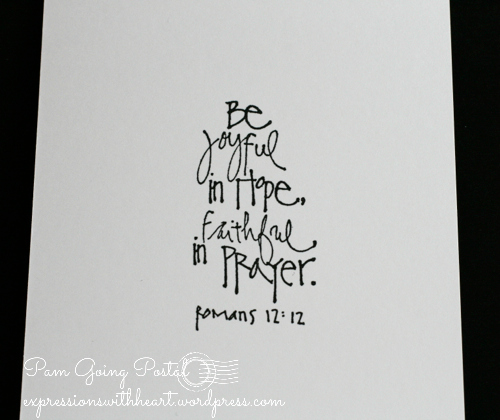 Be
joyful
in Hope,
faithful
in Prayer.
Romans 12:12
Pam Going Postal
expressionswithheart.wordpress.com